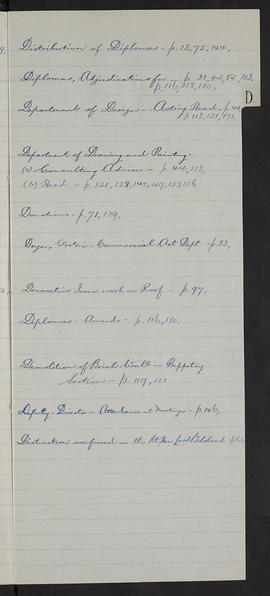 9.
Distribution of Diplomas - p. 18, 75, 144.
Diplomas, Adjudications for - p. 38, 44, 54, 103,
p. 116, 155, 180.
D
Department of Design - Acting Head - p. 44
p. 113, 121, 171.
Department of Drawing and Painting -
(a) Consulting Adviser - p. 44, 113,
(b) Head - p. 121, 127, 145, 149, 153, 156
Donations - p. 78, 139.
Dryer, Electric - Commercial Art Dept - p. 53,
Decorative Iron work on Roof - p. 97.
Diplomas - Awards - p. 116, 180.
Demolition of Brick Wall in Pottery
Section - p. 119, 122,
Deputy-Director - Attendance at Meetings - p. 146,
Distinction conferred on the Rt. Hon. Lord Bilsland